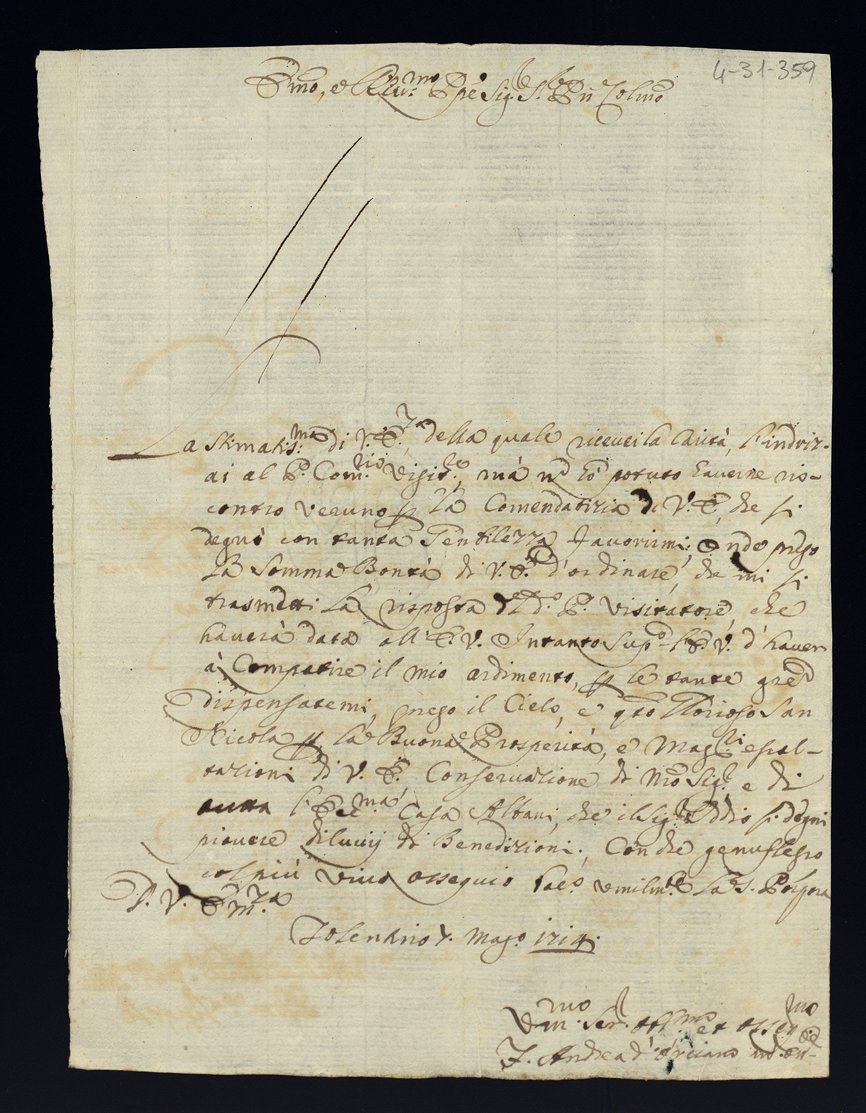 4-31-359
Emo, e Rev:mo Pñe Sig.r S.r Pñ Colmo
La stimatis:ma di V. E.za, della quale ricevei la Carità, l'indriz-
ai al P. Com.rio Visit.re, mà nõ hò potuto haverne ris-
contro veruno p la Comendatizia di V. E., che si
degnò con tanta Gentilezza favorirmi; Onde prego
La Somma Bontà di V. E.za d'ordinare, che mi si
trasmetti la risposta del d.o P. Visitatore, che
haverà data all'E. V. Intanto Sup.o l'E. V. d'haver
à Compatire il mio ardimento, p le tante
dispensatemi, prego il Cielo, e qto Glorioso San
Nicola p la Buona Prosperità, e Mag.ri esal-
tazioni di V. E. Conservazione di Mõ Sig.re e di
tutta l'Ecc.ma Casa Albani, che il Sig.r Iddio si degni
piovere diluvij di Benedizioni; Con che genuflesso
col più vivo ossequio bacio umilm.te la S. Porpora
D. V. Em.za
Tolentino 7. Mago. 1714.
Um:mo Ser. obl.mo et osseq.mo
F. Andrea d'